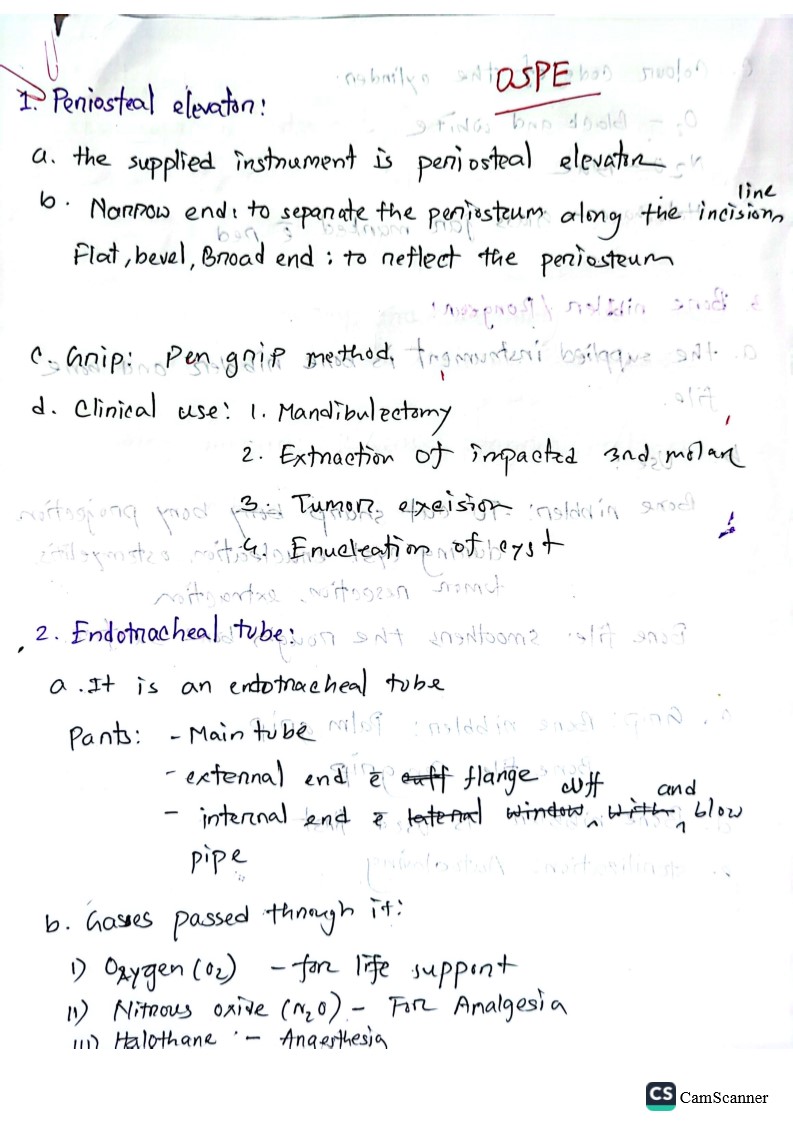 OSPE
1. Periosteal elevator:
a. the supplied instrument is periosteal elevator
b. Narrow end: to separate the periosteum along the incision line
Flat, bevel, Broad end : to reflect the periosteum
c. Grip: Pen grip method,
d. Clinical use: 1. Mandibulectomy
2. Extraction of impacted 3rd molar
3. Tumor excision
4. Enucleation of cyst
2. Endotracheal tube:
a. It is an endotracheal tube
Parts: - Main tube
- external end c̄ cuff flange
- internal end c̄ lateral window, cuff with and blow
pipe
b. Gasses passed through it:
i) Oxygen (O₂) - for life support
ii) Nitrous oxide (N₂O) - For Analgesia
iii) Halothane - Anaerthesia
CS CamScanner